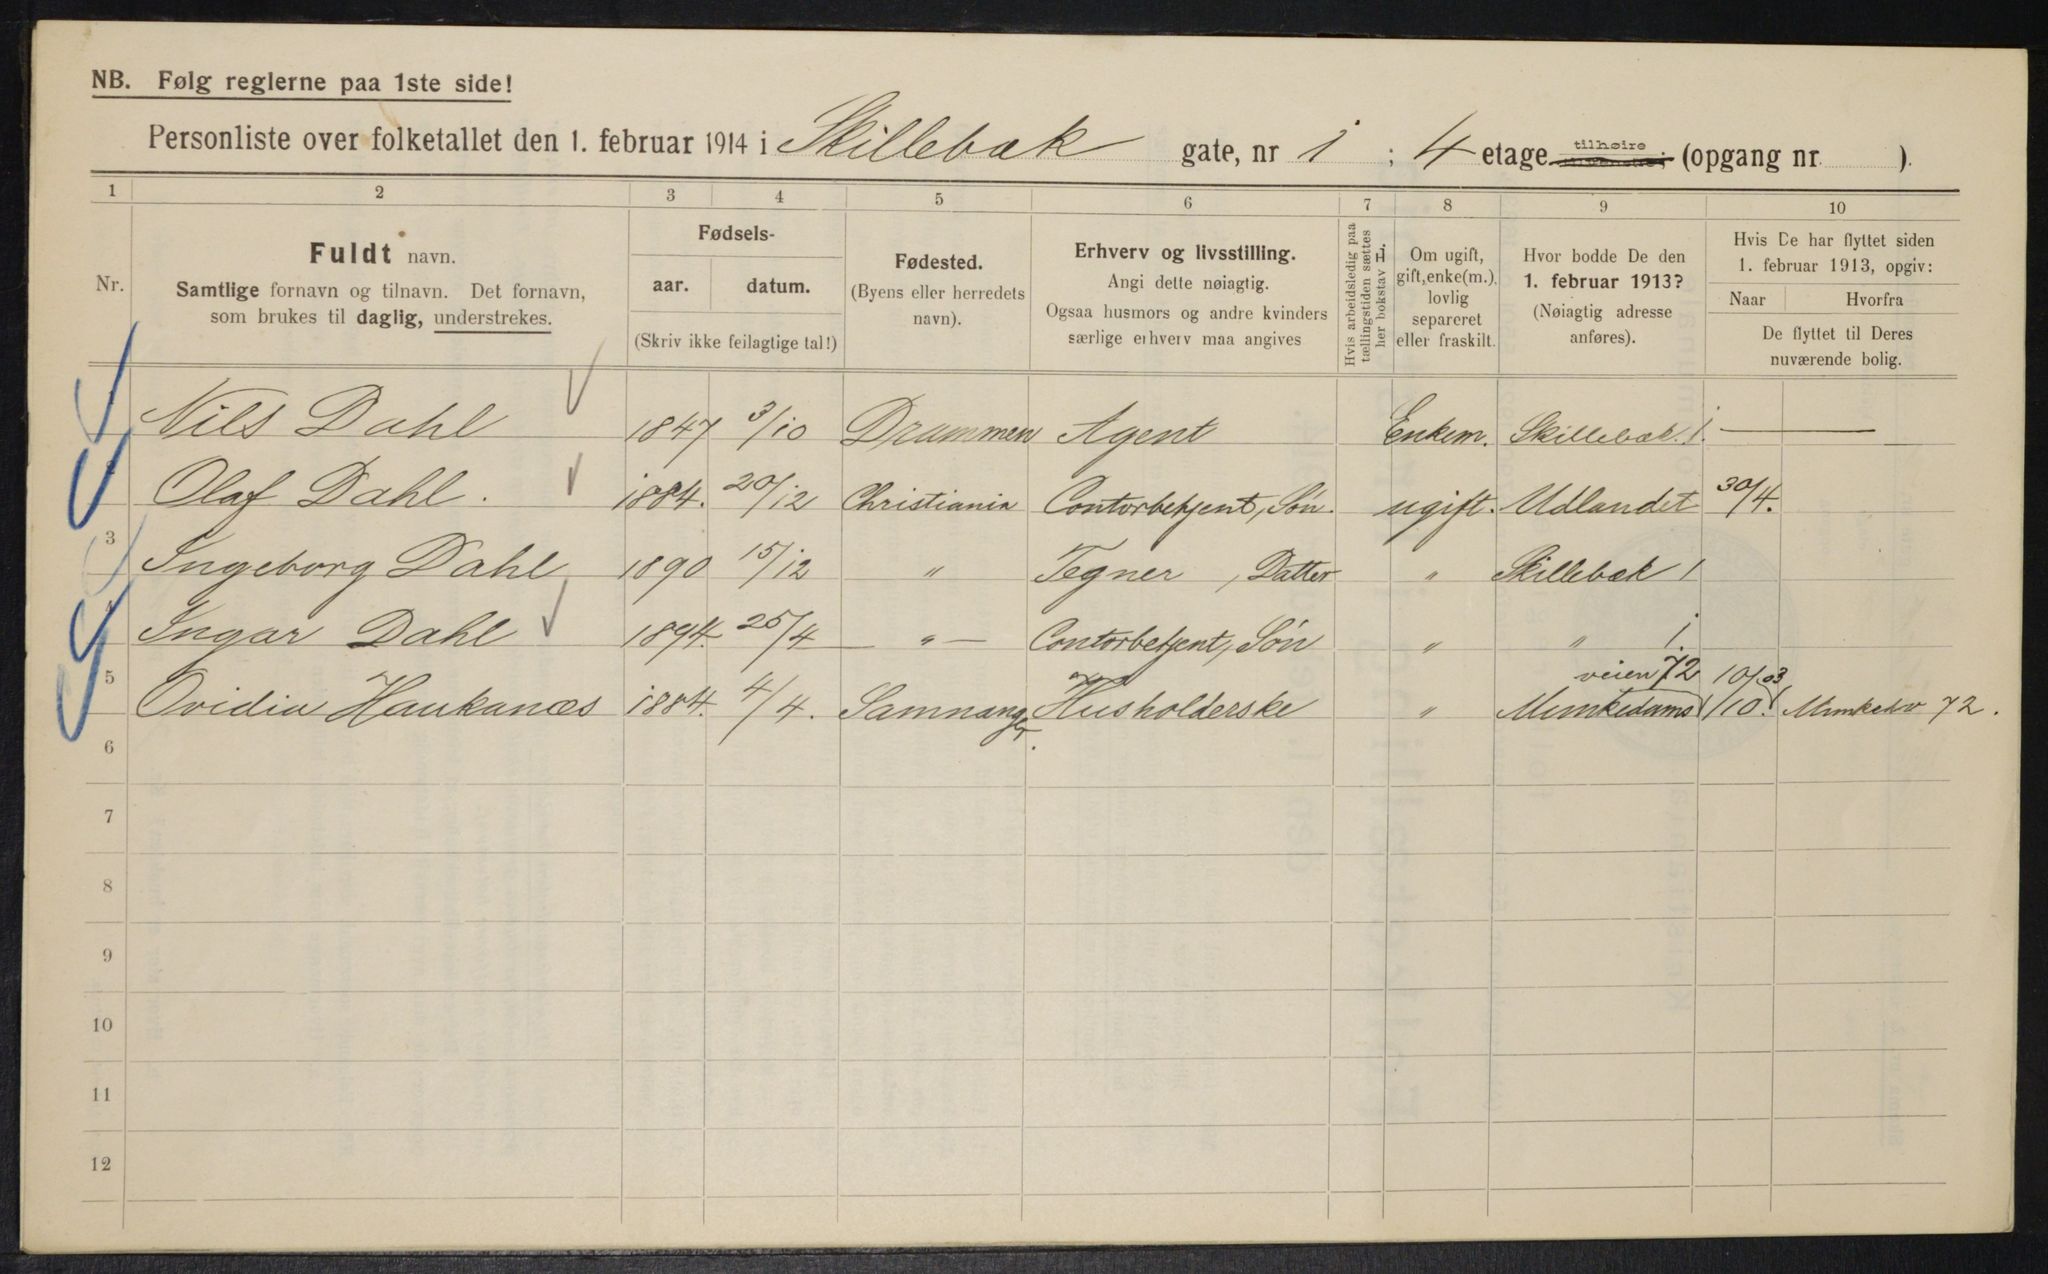 NB. Følg reglerne paa 1ste side!
Personliste over folketallet den 1. februar 1914 i Skillebæk gate, nr 1 ; 4 etage tilhøire (opgang nr ).
1 2 3 4 5 6 7 8 9 10
Nr.
Fuldt navn.
Samtlige fornavn og tilnavn. Det fornavn,
som brukes til daglig, understrekes.
Fødsels-
aar. datum.
(Skriv ikke feilagtige tal!)
Fødested.
(Byens eller herredets
navn).
Erhverv og livsstilling.
Angi dette nøiagtig.
Ogsaa husmors og andre kvinders
særlige erhverv maa angives
Hvis arbeidsledig paa
tællingstiden sættes
her bokstav L.
Om ugift,
gift, enke(m.),
lovlig
separeret
eller fraskilt.
Hvor bodde De den
1. februar 1913?
(Nøiagtig adresse
anføres).
Hvis De har flyttet siden
1. februar 1913, opgiv:
Naar Hvorfra
De flyttet til Deres
nuværende bolig.
Nils Dahl 1847 3/10 Drammen Agent Enkem. Skillebæk 1. —
Olaf Dahl. 1884. 20/12 Christiania Contorbetjent, Søn. ugift. Udlandet 30/4.
3 Ingeborg Dahl 1890 15/12 " Tegner, Datter " Skillebæk 1
Ingar Dahl 1894. 25/4 — " — Contorbetjent, Søn " " 1.
veien 72
5 Ovidia Haukanæs 1884. 4/4. Samnanger. Husholderske " Munkedams 1/10. Munkedv 72.
6
7
8
9
10
11
12